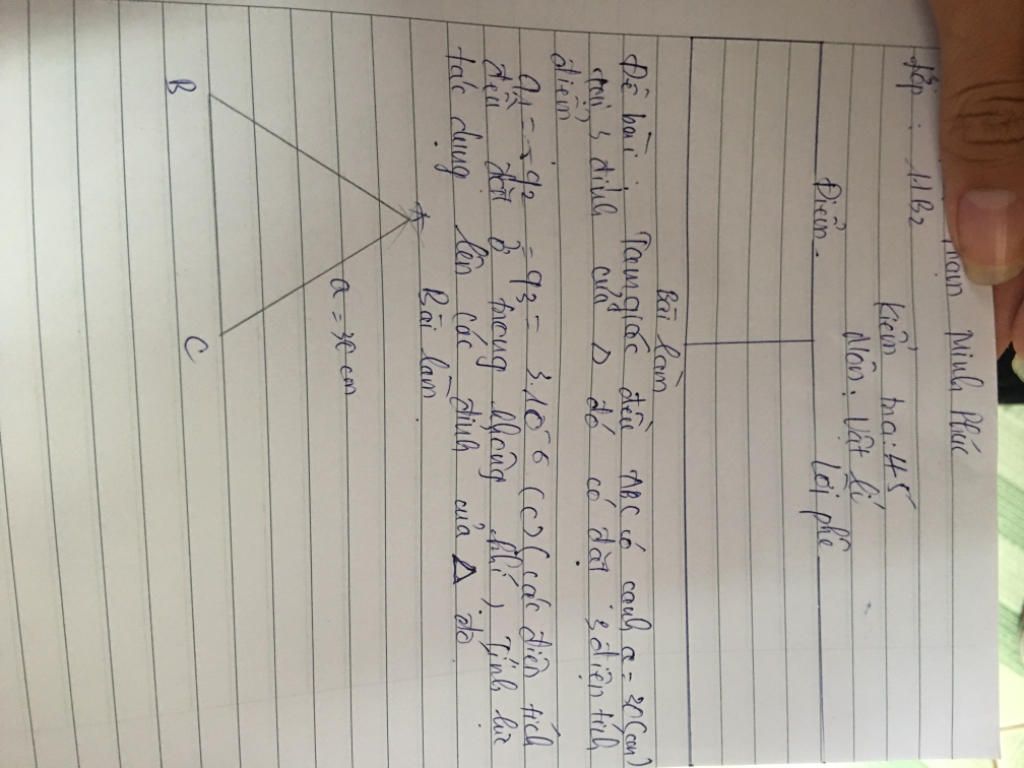 Minh Phúc
Lớp : 11B2
Kiểm tra: 45
Môn: Vật lí
Điểm. Lời phê
Bài làm
Đề bài : Tam giác đều ABC có cạnh a = (cm)
tại 3 đỉnh của Δ đó có đặt 3 điện tích
điểm
q1 = - q2 = q3 = 3.10-6 (C) (các điện tích
đều đặt ở trong không khí). Tính lực
tác dụng lên các đỉnh của Δ đó
Bài làm
A
a = cm
B
C